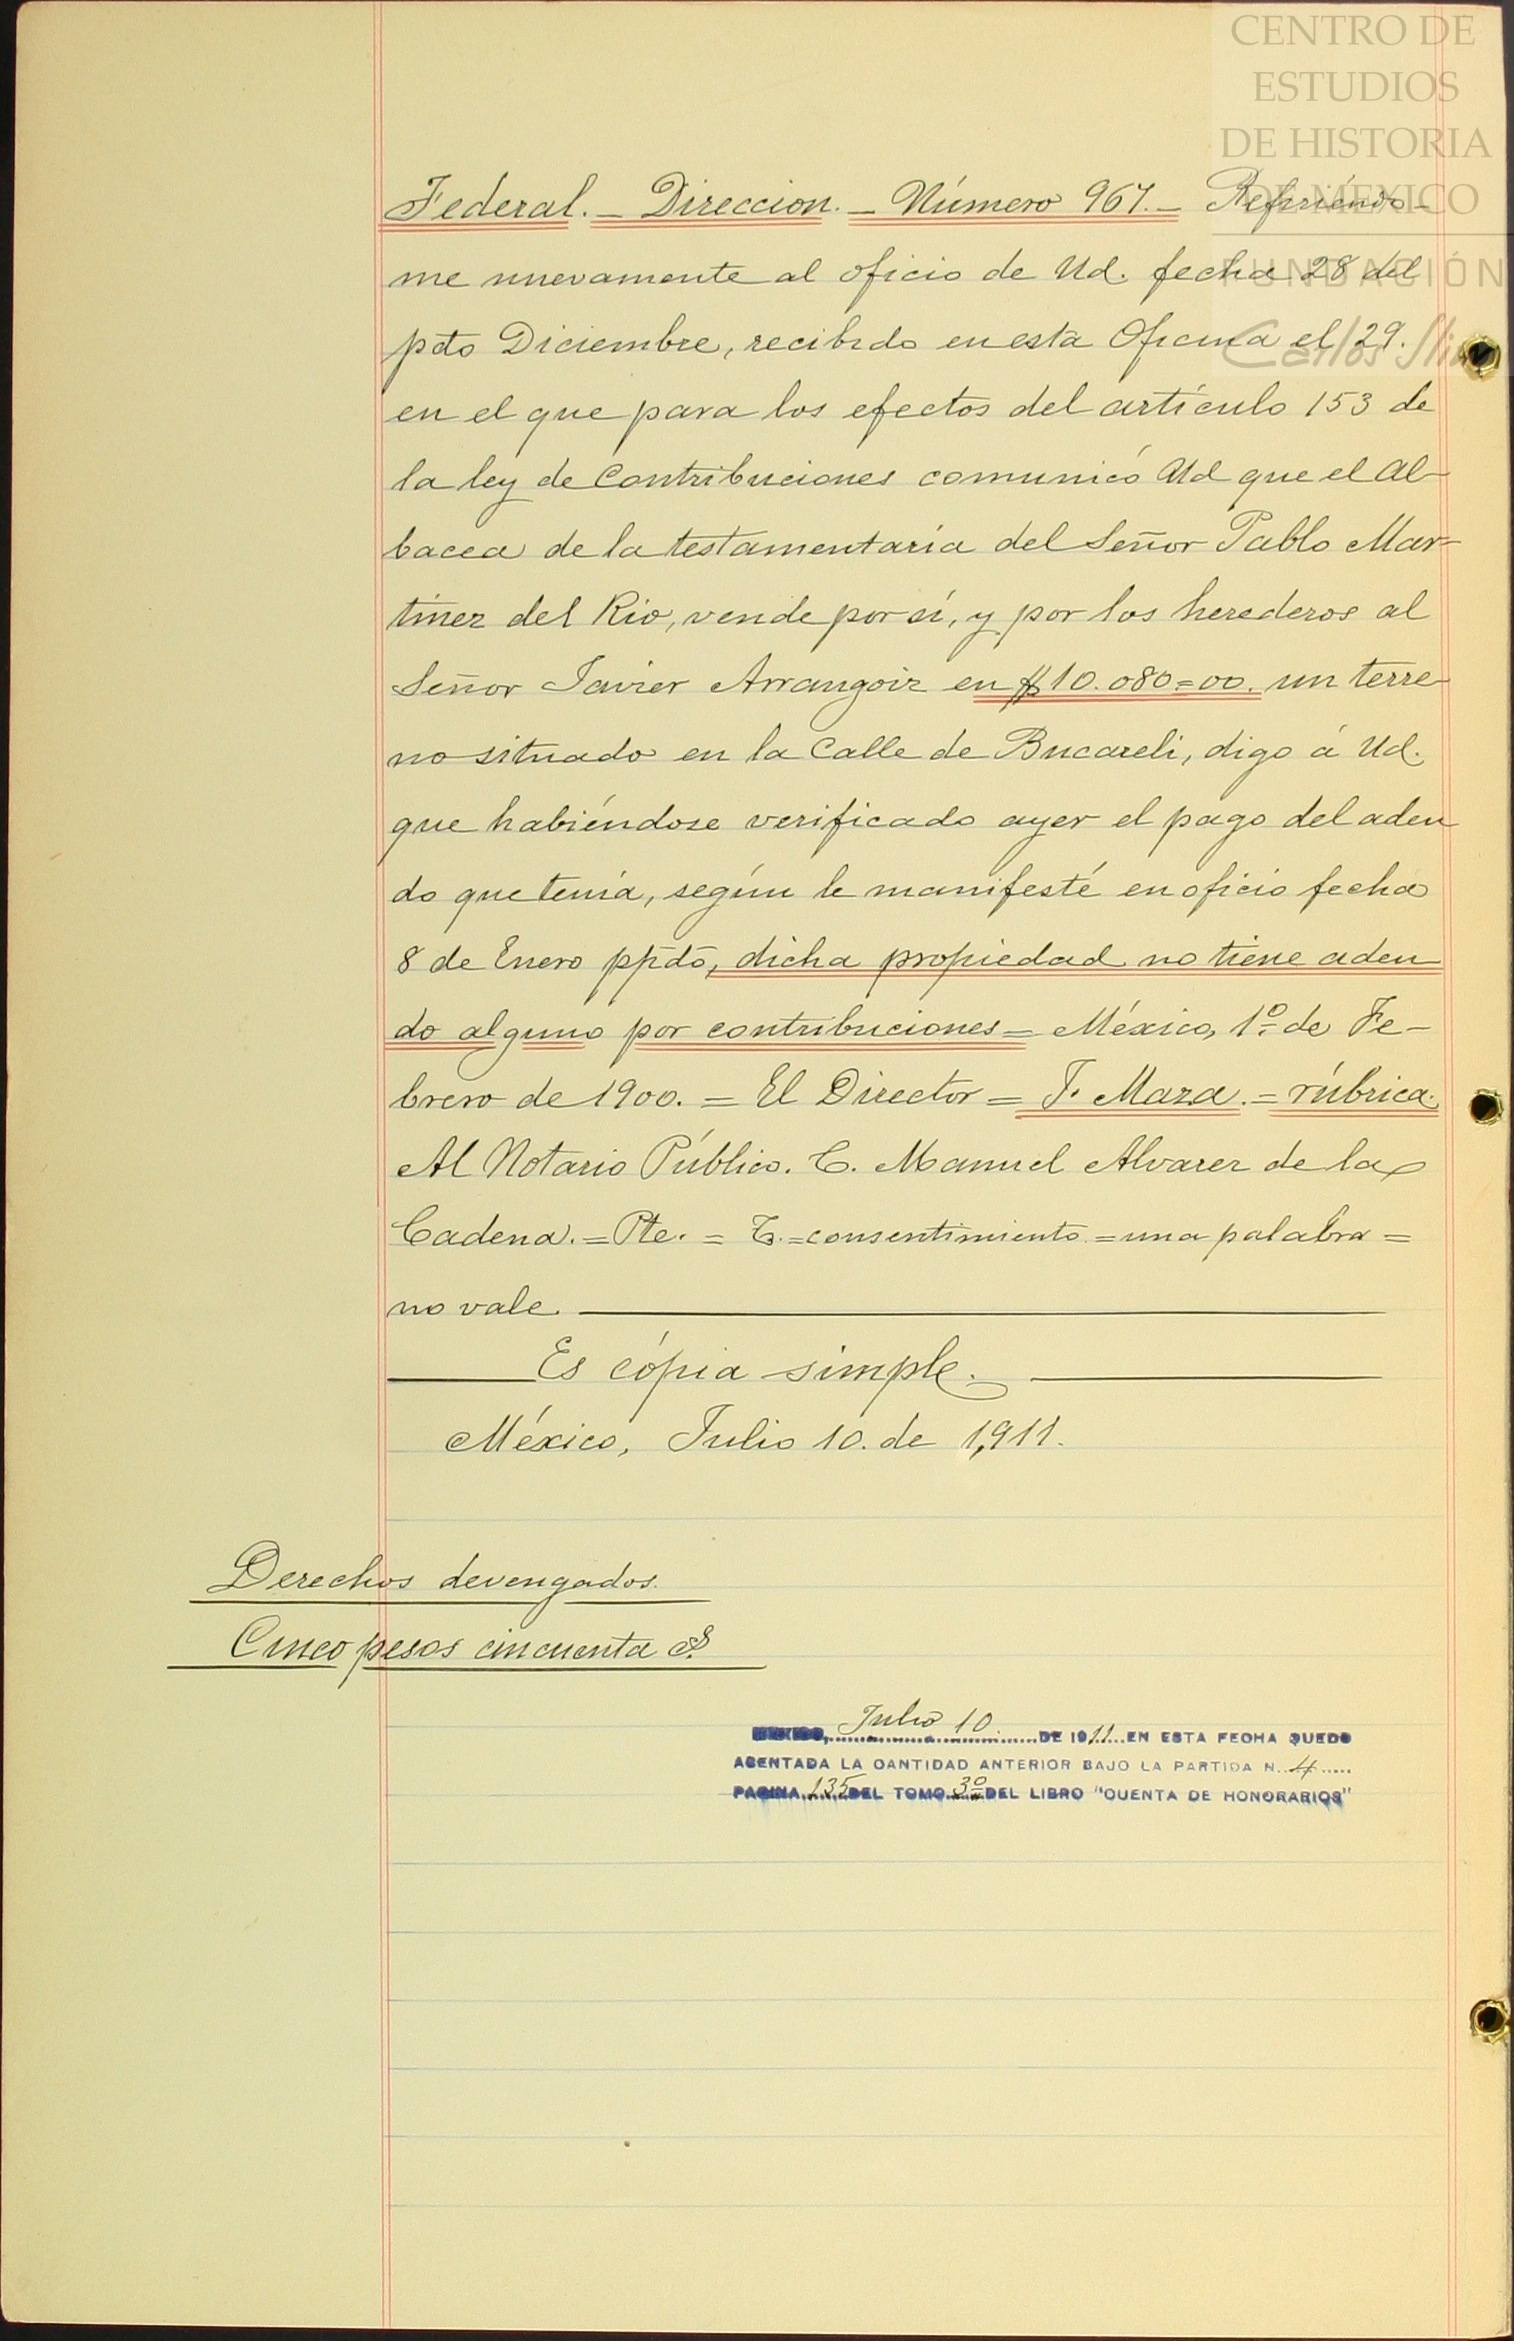 CENTRO DE
ESTUDIOS
DE HISTORIA
DE MÉXICO
FUNDACIÓN
Carlos Slim
Federal. _ Direccion. _ Número 967. _ Refiriéndo-
me nuevamente al oficio de Ud. fecha 28 del
pdo Diciembre, recibido en esta Oficina el 29.
en el que para los efectos del artículo 153 de
la ley de Contribuciones comunicó Ud que el Al-
bacea de la testamentaría del Señor Pablo Mar-
tinez del Rio, vende por sí, y por los herederos al
Señor Javier Arrangoiz en $10.080=00. un terre-
no situado en la Calle de Bucareli, digo á Ud.
que habiéndose verificado ayer el pago del adeu
do que tenía, según le manifesté en oficio fecha
8 de Enero ppdo, dicha propiedad no tiene adeu
do alguno por contribuciones = México, 1º de Fe-
brero de 1900. = El Director = F. Maza. = rúbrica.
Al Notario Público. C. Manuel Alvarez de la
Cadena. = Pte. = T. = consentimiento = una palabra =
no vale.
Es cópia simple.
México, Julio 10. de 1,911.
Derechos devengados.
Cinco pesos cincuenta cs.
MEXICO, Julio 10 DE 1911 EN ESTA FECHA QUEDO
ASENTADA LA CANTIDAD ANTERIOR BAJO LA PARTIDA N. 4
PAGINA 135 DEL TOMO 3º DEL LIBRO "CUENTA DE HONORARIOS"